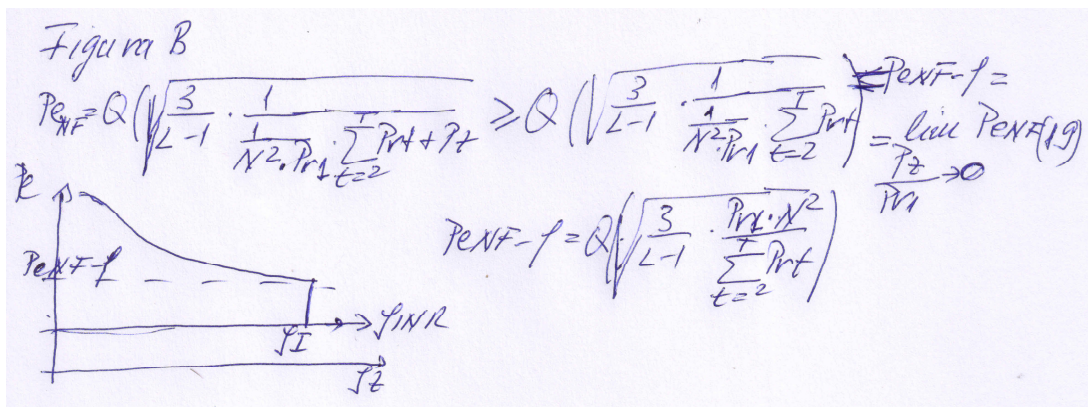 Figura B
Pe_NF = Q(√(3/(L-1) · 1/(1/(N²·Pr1) · Σ_{t=2}^{I} Prt + Pz))) ⩾ Q(√(3/(L-1) · 1/(1/(N²·Pr1) Σ_{t=2}^{I} Prt))) = PeNF-ρ =
= lim_{Pz/Pr1→0} PeNF(ρ)
PeNF-ρ = Q(√(3/(L-1) · Pr1·N²/Σ_{t=2}^{I} Prt))
Pe
PeNF-ρ
ρINR
ρI
ρz